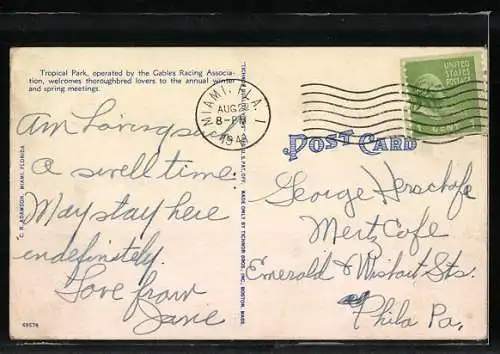 Tropical Park, operated by the Gables Racing Associa-
tion, welcomes thoroughbred lovers to the annual winter
and spring meetings.
Am having such
a swell time.
May stay here
indefinitely.
Love from
Jane
C. H. ADAMSON, MIAMI, FLORIDA
69576
MADE ONLY BY TICHNOR BROS., INC., BOSTON, MASS.
MIAMI, FLA. 1
AUG
8-PM
194
UNITED
STATES
POSTAGE
1 CENT
POST CARD
George Herschafe
Mertz Cafe
Emerald & Wishart Sts.
Phila Pa.